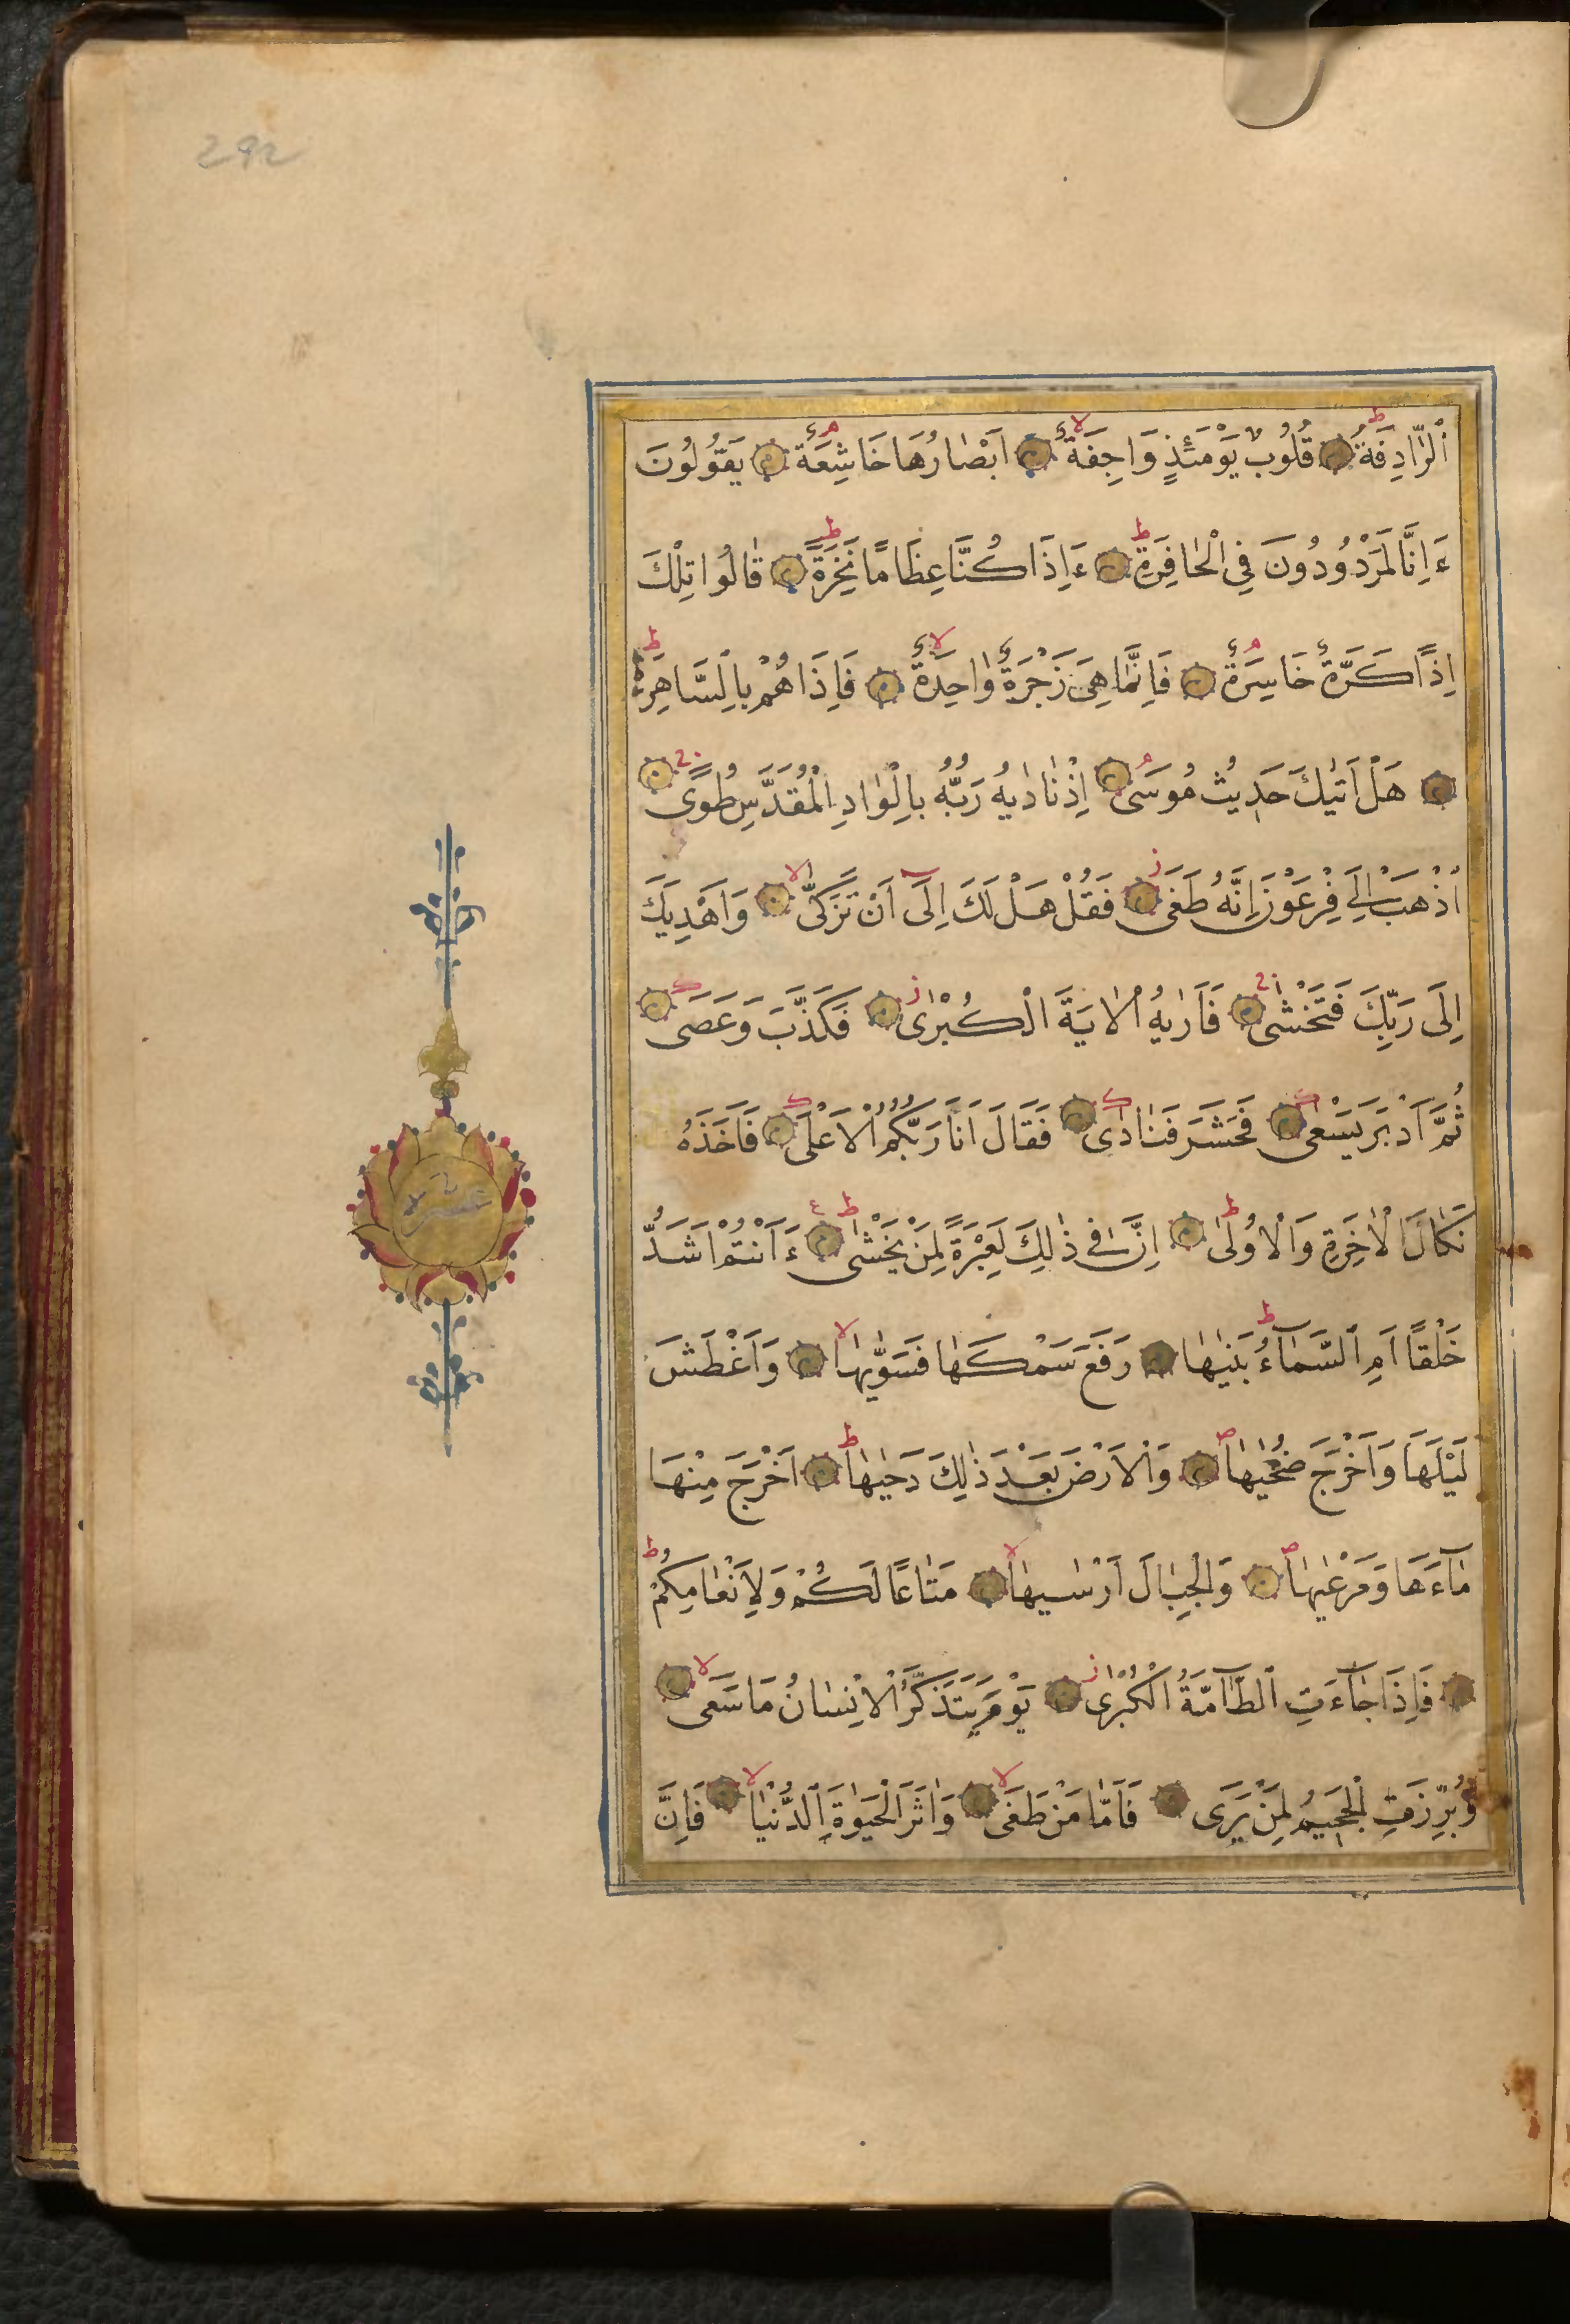 292
اَلرَّادِفَةُ ط قُلُوبٌ يَوْمَئِذٍ وَاجِفَةٌ لا اَبْصَارُهَا خَاشِعَةٌ م يَقُولُونَ
ءَاِنَّا لَمَرْدُودُونَ فِي الْحَافِرَةِ ط ءَاِذَا كُنَّا عِظَامًا نَخِرَةً ط قَالُوا تِلْكَ
اِذًا كَرَّةٌ خَاسِرَةٌ م فَاِنَّمَا هِيَ زَجْرَةٌ وَاحِدَةٌ لا فَاِذَا هُمْ بِالسَّاهِرَةِ ط
هَلْ اَتٰيكَ حَدِيثُ مُوسٰى م اِذْ نَادٰيهُ رَبُّهُ بِالْوَادِ الْمُقَدَّسِ طُوًى
اِذْهَبْ اِلٰى فِرْعَوْنَ اِنَّهُ طَغٰى ز فَقُلْ هَلْ لَكَ اِلٰى اَنْ تَزَكّٰى لا وَاَهْدِيَكَ
اِلٰى رَبِّكَ فَتَخْشٰى فَاَرٰيهُ الْاٰيَةَ الْكُبْرٰى ز فَكَذَّبَ وَعَصٰى
ثُمَّ اَدْبَرَ يَسْعٰى فَحَشَرَ فَنَادٰى فَقَالَ اَنَا رَبُّكُمُ الْاَعْلٰى فَاَخَذَهُ
نَكَالَ الْاٰخِرَةِ وَالْاُولٰى ط اِنَّ فِي ذٰلِكَ لَعِبْرَةً لِمَنْ يَخْشٰى ط ع ءَاَنْتُمْ اَشَدُّ
خَلْقًا اَمِ السَّمَاۤءُ ط بَنٰيهَا رَفَعَ سَمْكَهَا فَسَوّٰيهَا لا وَاَغْطَشَ
لَيْلَهَا وَاَخْرَجَ ضُحٰيهَا ص وَالْاَرْضَ بَعْدَ ذٰلِكَ دَحٰيهَا ط اَخْرَجَ مِنْهَا
مَاۤءَهَا وَمَرْعٰيهَا ص وَالْجِبَالَ اَرْسٰيهَا لا مَتَاعًا لَكُمْ وَلِاَنْعَامِكُمْ ط
فَاِذَا جَاۤءَتِ الطَّاۤمَّةُ الْكُبْرٰى ز يَوْمَ يَتَذَكَّرُ الْاِنْسَانُ مَا سَعٰى لا
وَبُرِّزَتِ الْجَحِيمُ لِمَنْ يَرٰى فَاَمَّا مَنْ طَغٰى لا وَاٰثَرَ الْحَيٰوةَ الدُّنْيَا لا فَاِنَّ
عشر